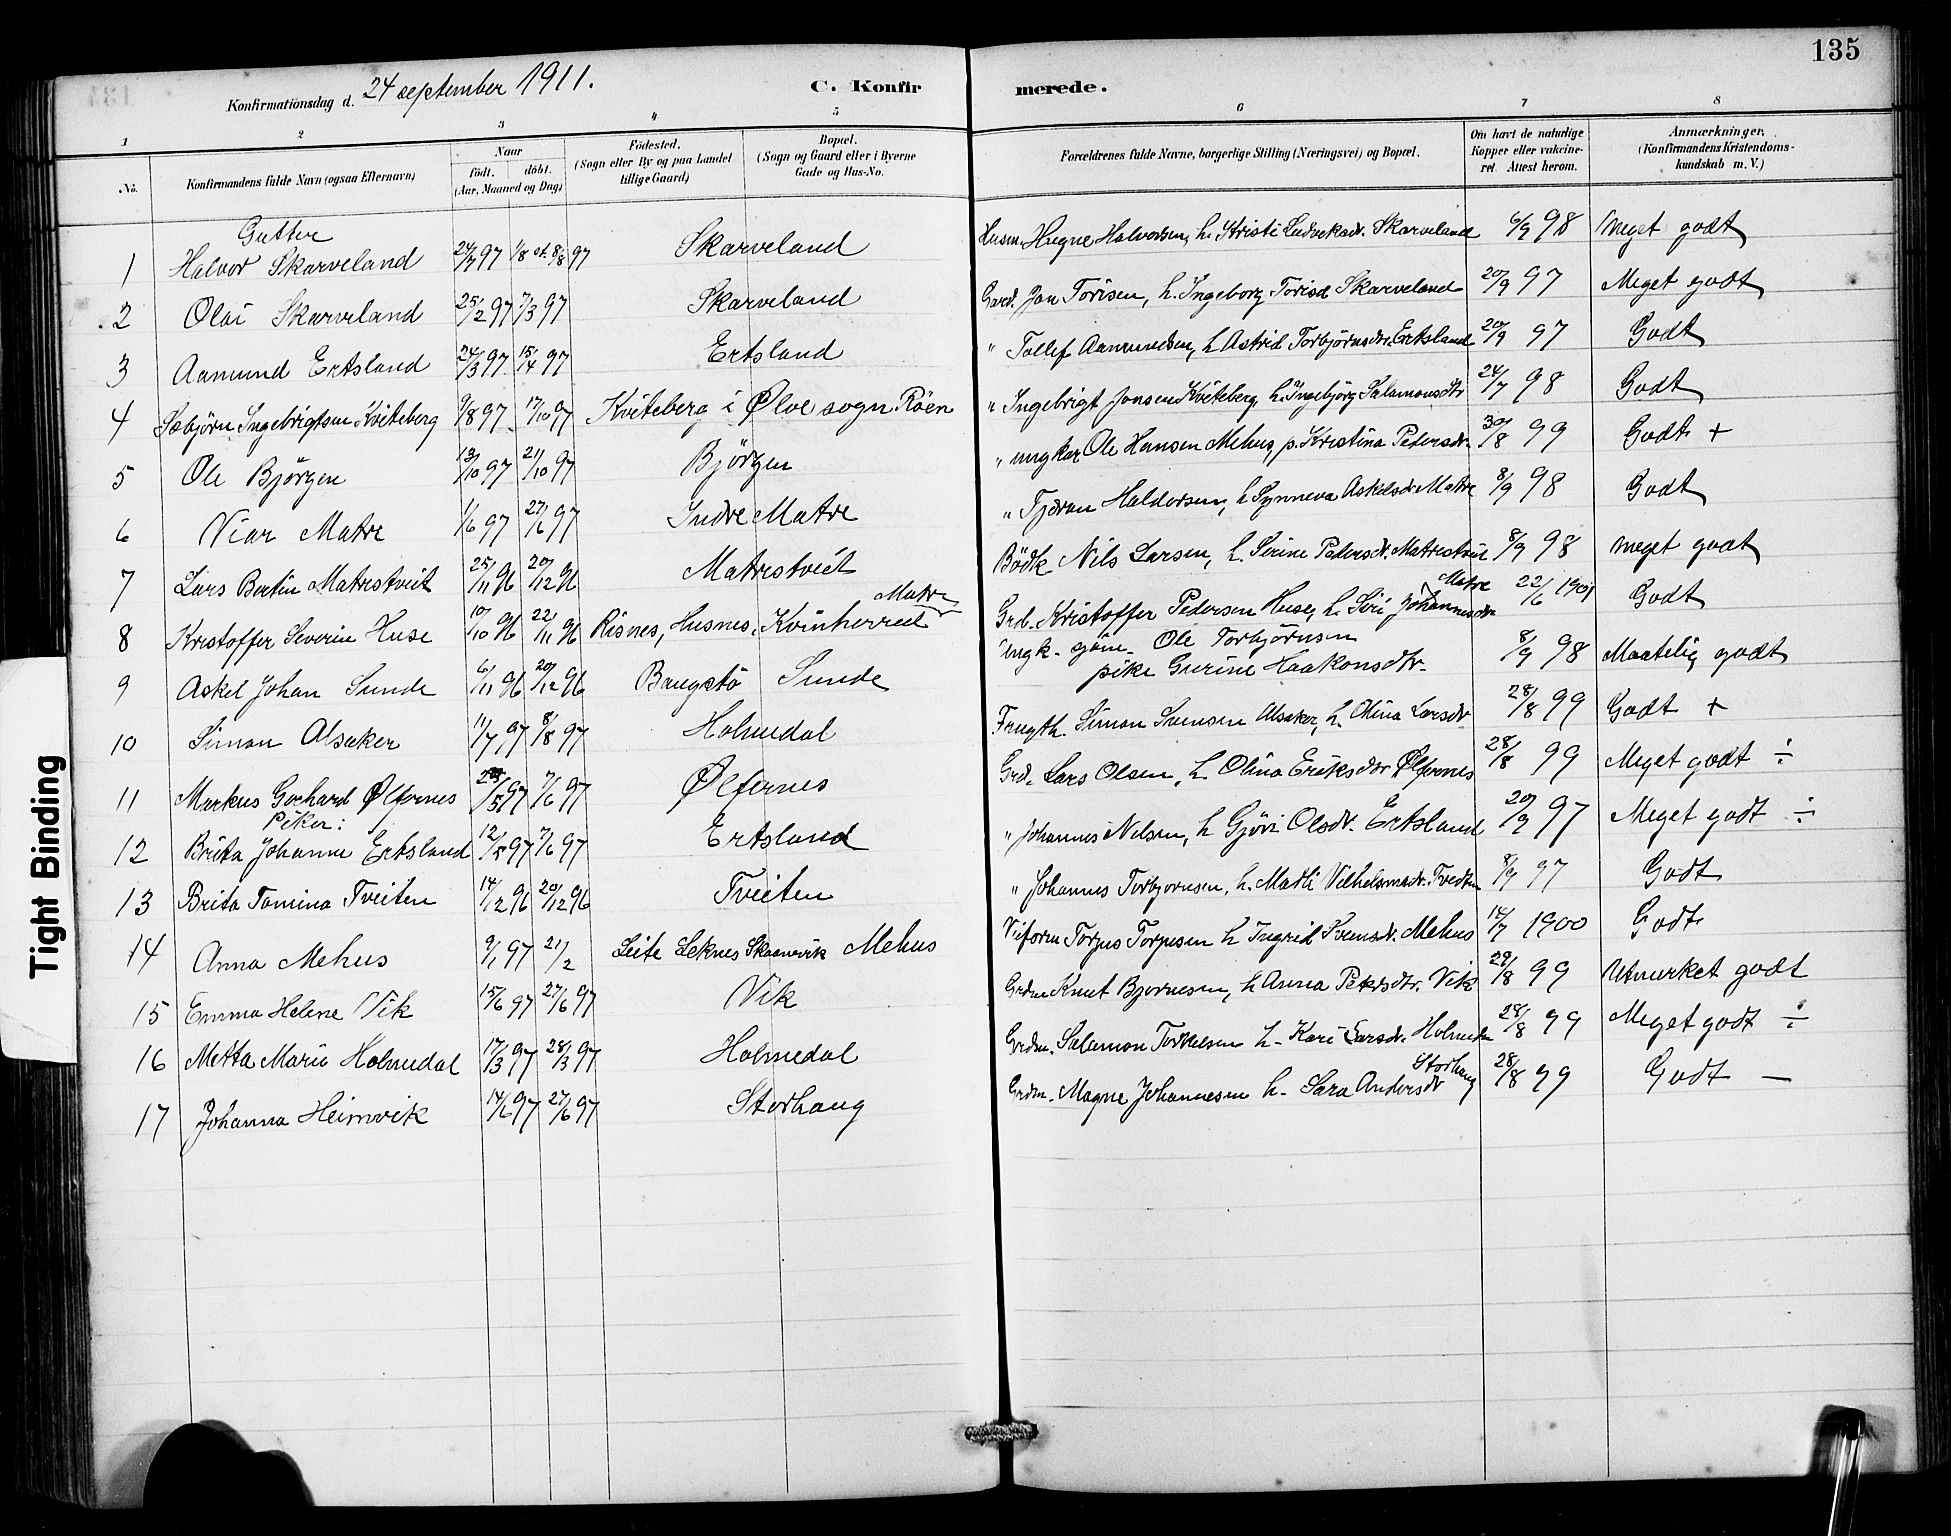 135
Konfirmationsdag d. 24 september 1911.
C. Konfirmerede.
1 2 3 4 5 6 7 8
No. Konfirmandens fulde Navn (ogsaa Efternavn) Naar födt. döbt. (Aar, Maaned og Dag) Födested. (Sogn eller By og paa Landet tillige Gaard) Bopæl. (Sogn og Gaard eller i Byerne Gade og Hus-No. Forældrenes fulde Navne, borgerlige Stilling (Næringsvei) og Bopæl. Om havt de naturlige Kopper eller vakcineret Attest herom. Anmærkninger. (Konfirmandens Kristendomskundskab m. V.)
Gutter
1 Halvor Skarveland 24/7 97 1/8 st. 8/8 97 Skarveland Husm. Hugne Halvorsen, h. Kristi Ludveksdr. Skarveland 6/9 98 Meget godt
2 Olai Skarveland 25/2 97 7/3 97 Skarveland Gaard. Jon Torisen, h. Ingeborg Torisd Skarveland 20/9 97 Meget godt
3 Aamund Ertsland 24/3 97 15/4 97 Ertsland " Tollef Aamundsen, h Astrid Torbjörnsdr. Ertsland 20/9 97 Godt
4 Sæbjörn Ingebrigtsen Kviteberg 9/8 97 17/10 97 Kviteberg i Ølve sogn Röen " Ingebrigt Jonsen Kviteberg, h. Ingebjörg Salamonsdtr 24/7 98 Godt
5 Ole Björgen 13/10 97 21/10 97 Björgen " ungkar Ole Hansen Mehus, p. Kristina Pedersdr. 30/8 99 Godt +
6 Viar Matre 1/6 97 27/6 97 Indre Matre " Tjeran Haldorsen, h Synneva Askelsdr Matre 8/9 98 Godt
7 Lars Bertin Matrestveit 25/11 96 20/12 96 Matrestveit Bödk Nils Larsen, h. Serine Pedersdr. Matrestveit 8/9 98 Meget godt
8 Kristoffer Severin Huse 10/10 96 22/11 96 Risnes, Husnes, Kvinherred Matre Grdb. Kristoffer Pedersen Huse, h. Siri Johannesdtr Matre 22/6 1901 Godt
9 Askel Johan Sunde 6/11 96 20/12 96 Baugstö Sunde Ungk. Ole Torbjörnsen
pike Gurine Haakonsdtr. 8/9 98 Maatelig godt
10 Simon Alsaker 11/7 97 8/8 97 Holmedal Simon Svensen Alsaker, h. Olina Larsdr 28/8 99 Godt +
11 Markus Gerhard Ølfernes /5 97 7/6 97 Ølfernes Grd. Lars Olsen, h. Olina Eriksdtr Ølfernes 28/8 99 Meget godt ÷
Piker:
12 Brita Johanne Ertsland 12/5 97 7/6 97 Ertsland " Johannes Nelsen, h Gjöri Olsdr. Ertsland 20/9 97 Meget godt ÷
13 Brita Tomina Tveiten 14/12 96 20/12 96 Tveiten " Johannes Torbjornsen, h. Matli Vilhelmsdr. Tvedten 8/9 97 Godt
14 Anna Mehus 9/1 97 21/2 Leite Leknes Skaanevik Mehus Torjus Torjusen h Ingrid Svensdr. Mehus 14/7 1900 Godt
15 Emma Helene Vik 15/6 97 27/6 97 Vik Grdm Knut Bjornesen, h Anna Petersdtr. Vik 29/8 99 Utmerket godt
16 Metta Marie Holmedal 17/3 97 28/3 97 Holmedal Grdm. Salamon Torkelsen h. Kari Larsdr. Holmedn 28/8 99 Meget godt ÷
17 Johanna Heimvik 14/6 97 27/6 97 Storhaug Grdm. Magne Johannesen h. Sara Andersdr Storhaug 28/8 99 Godt —
Tight Binding